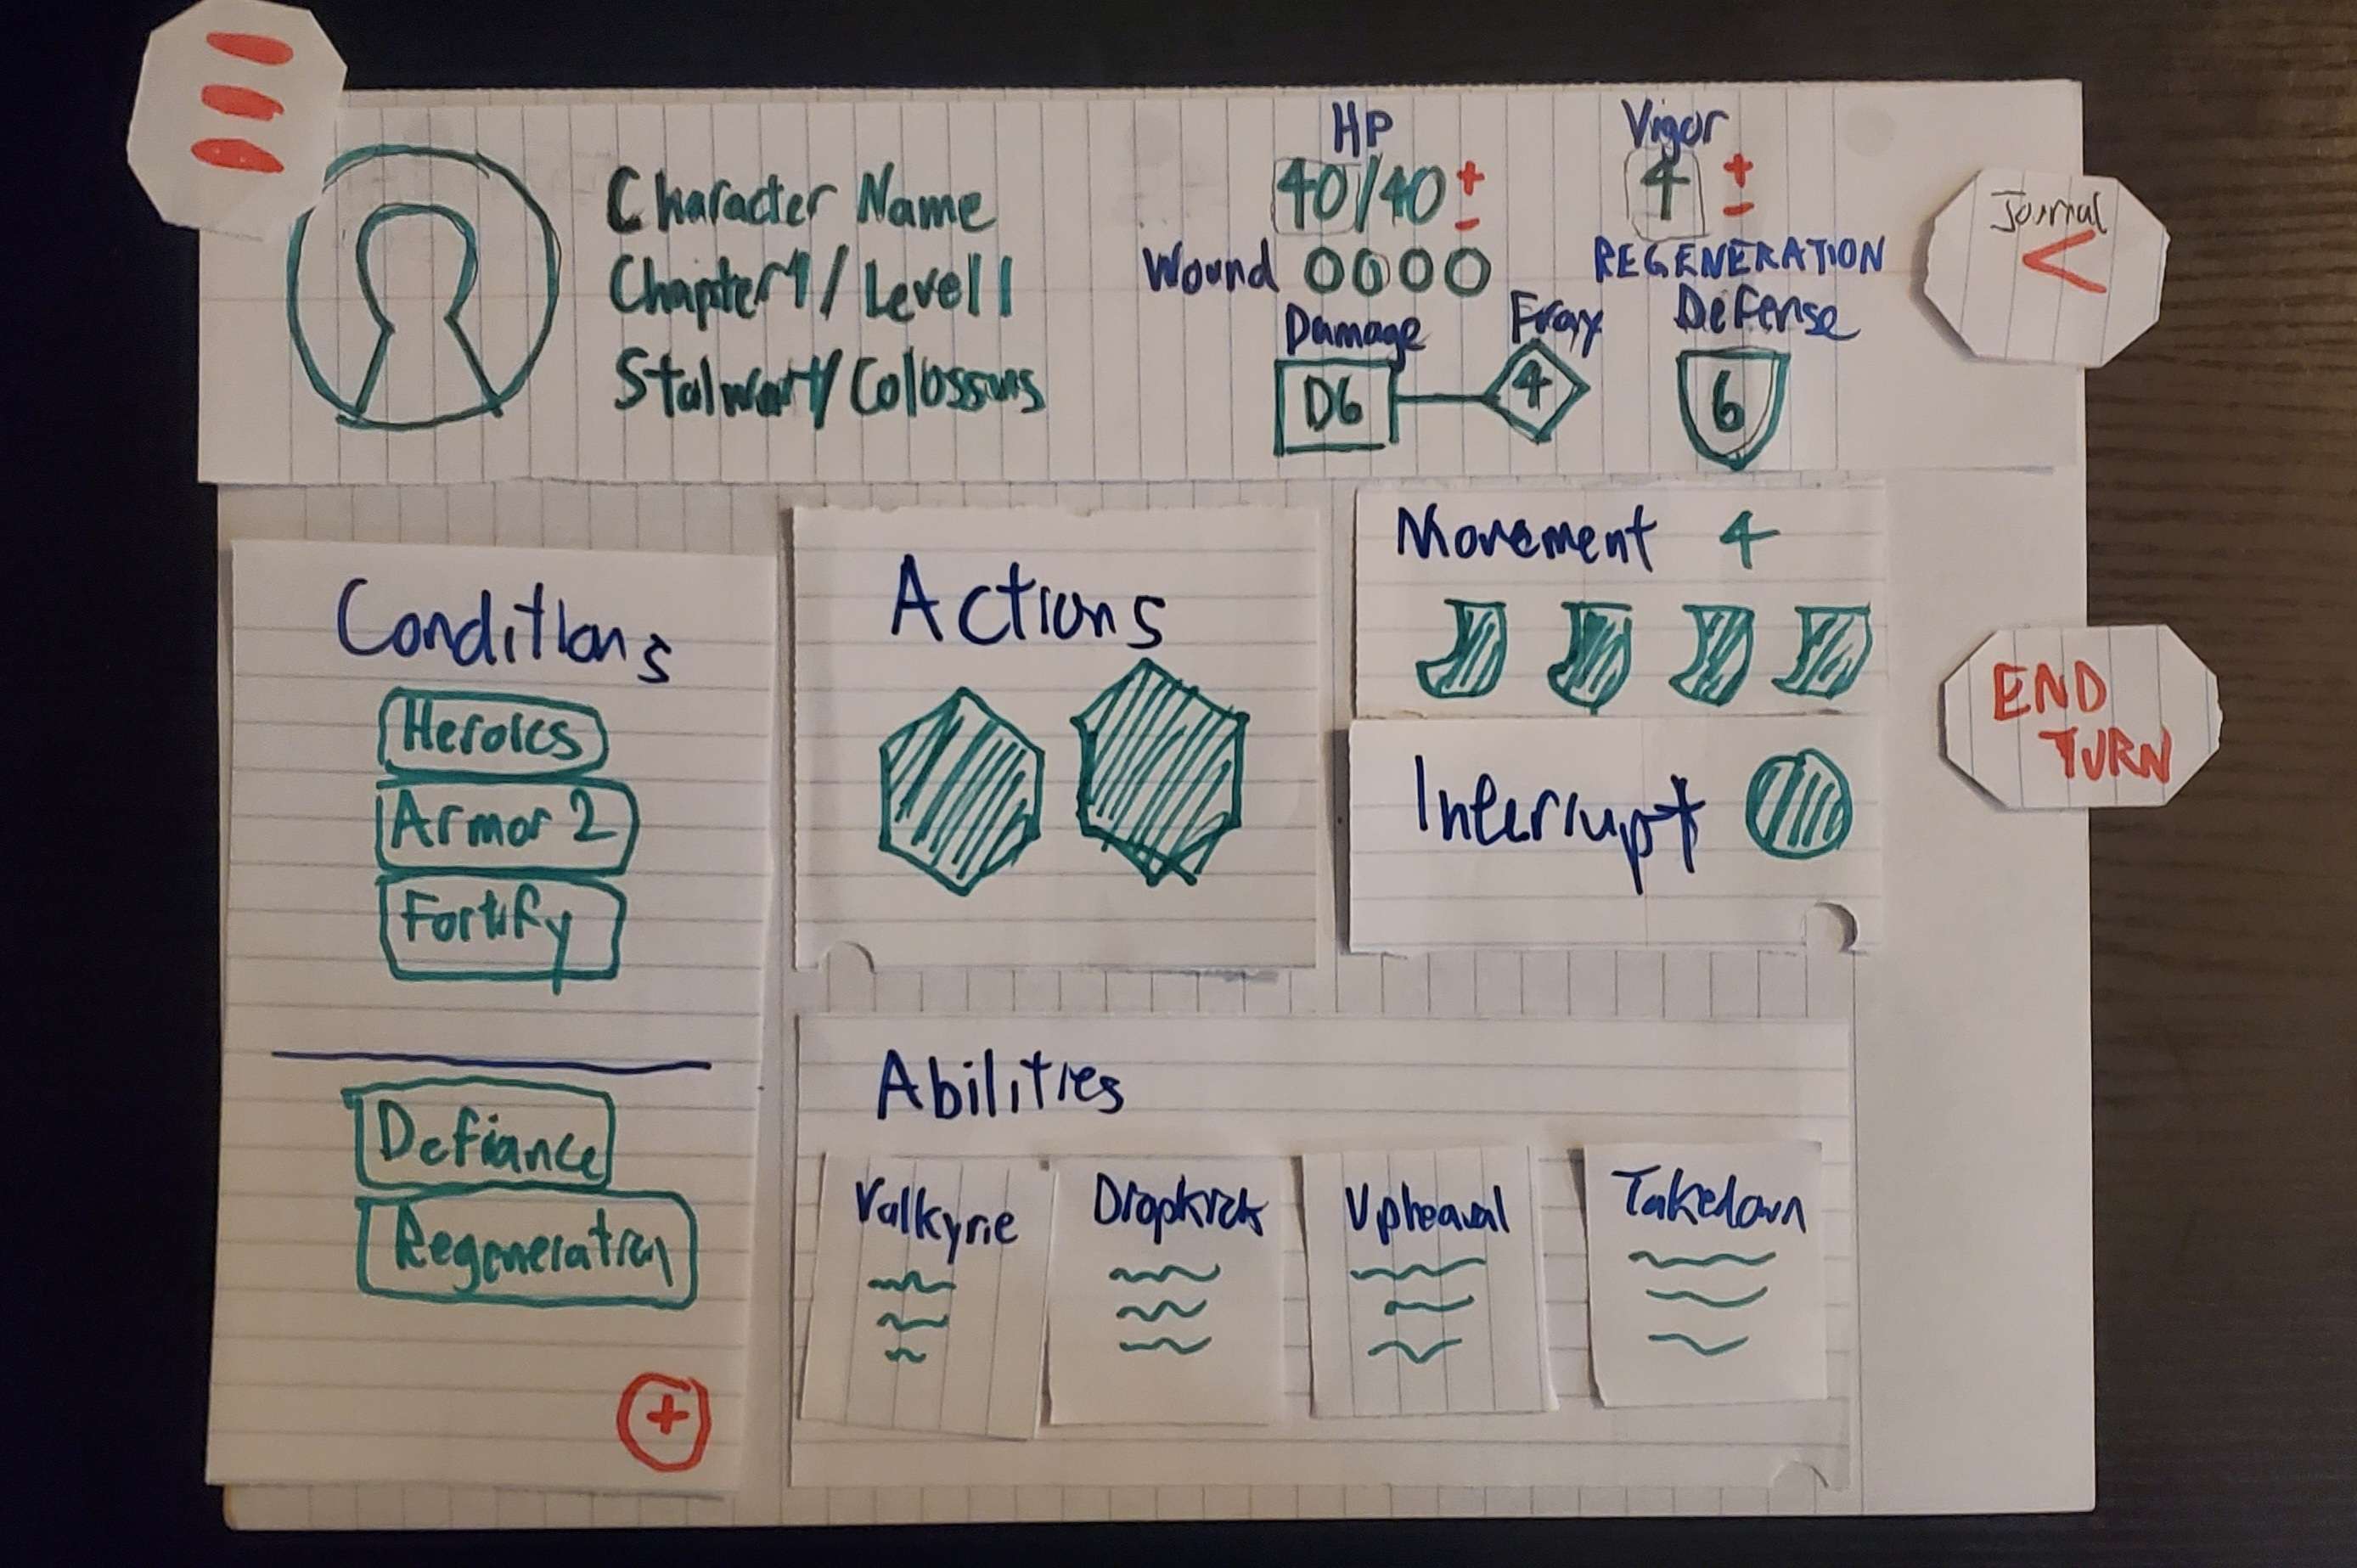 Character Name
Chapter 1/Level 1
Stalwart/Colossus
HP
40/40 + -
Wound
Vigor
4 + -
REGENERATION
Damage
D6
Fray
4
Defense
6
Journal
<
Conditions
Heroics
Armor 2
Fortify
Defiance
Regeneration
+
Actions
Movement 4
Interrupt
END
TURN
Abilities
Valkyrie
Dropkick
Upheaval
Takedown